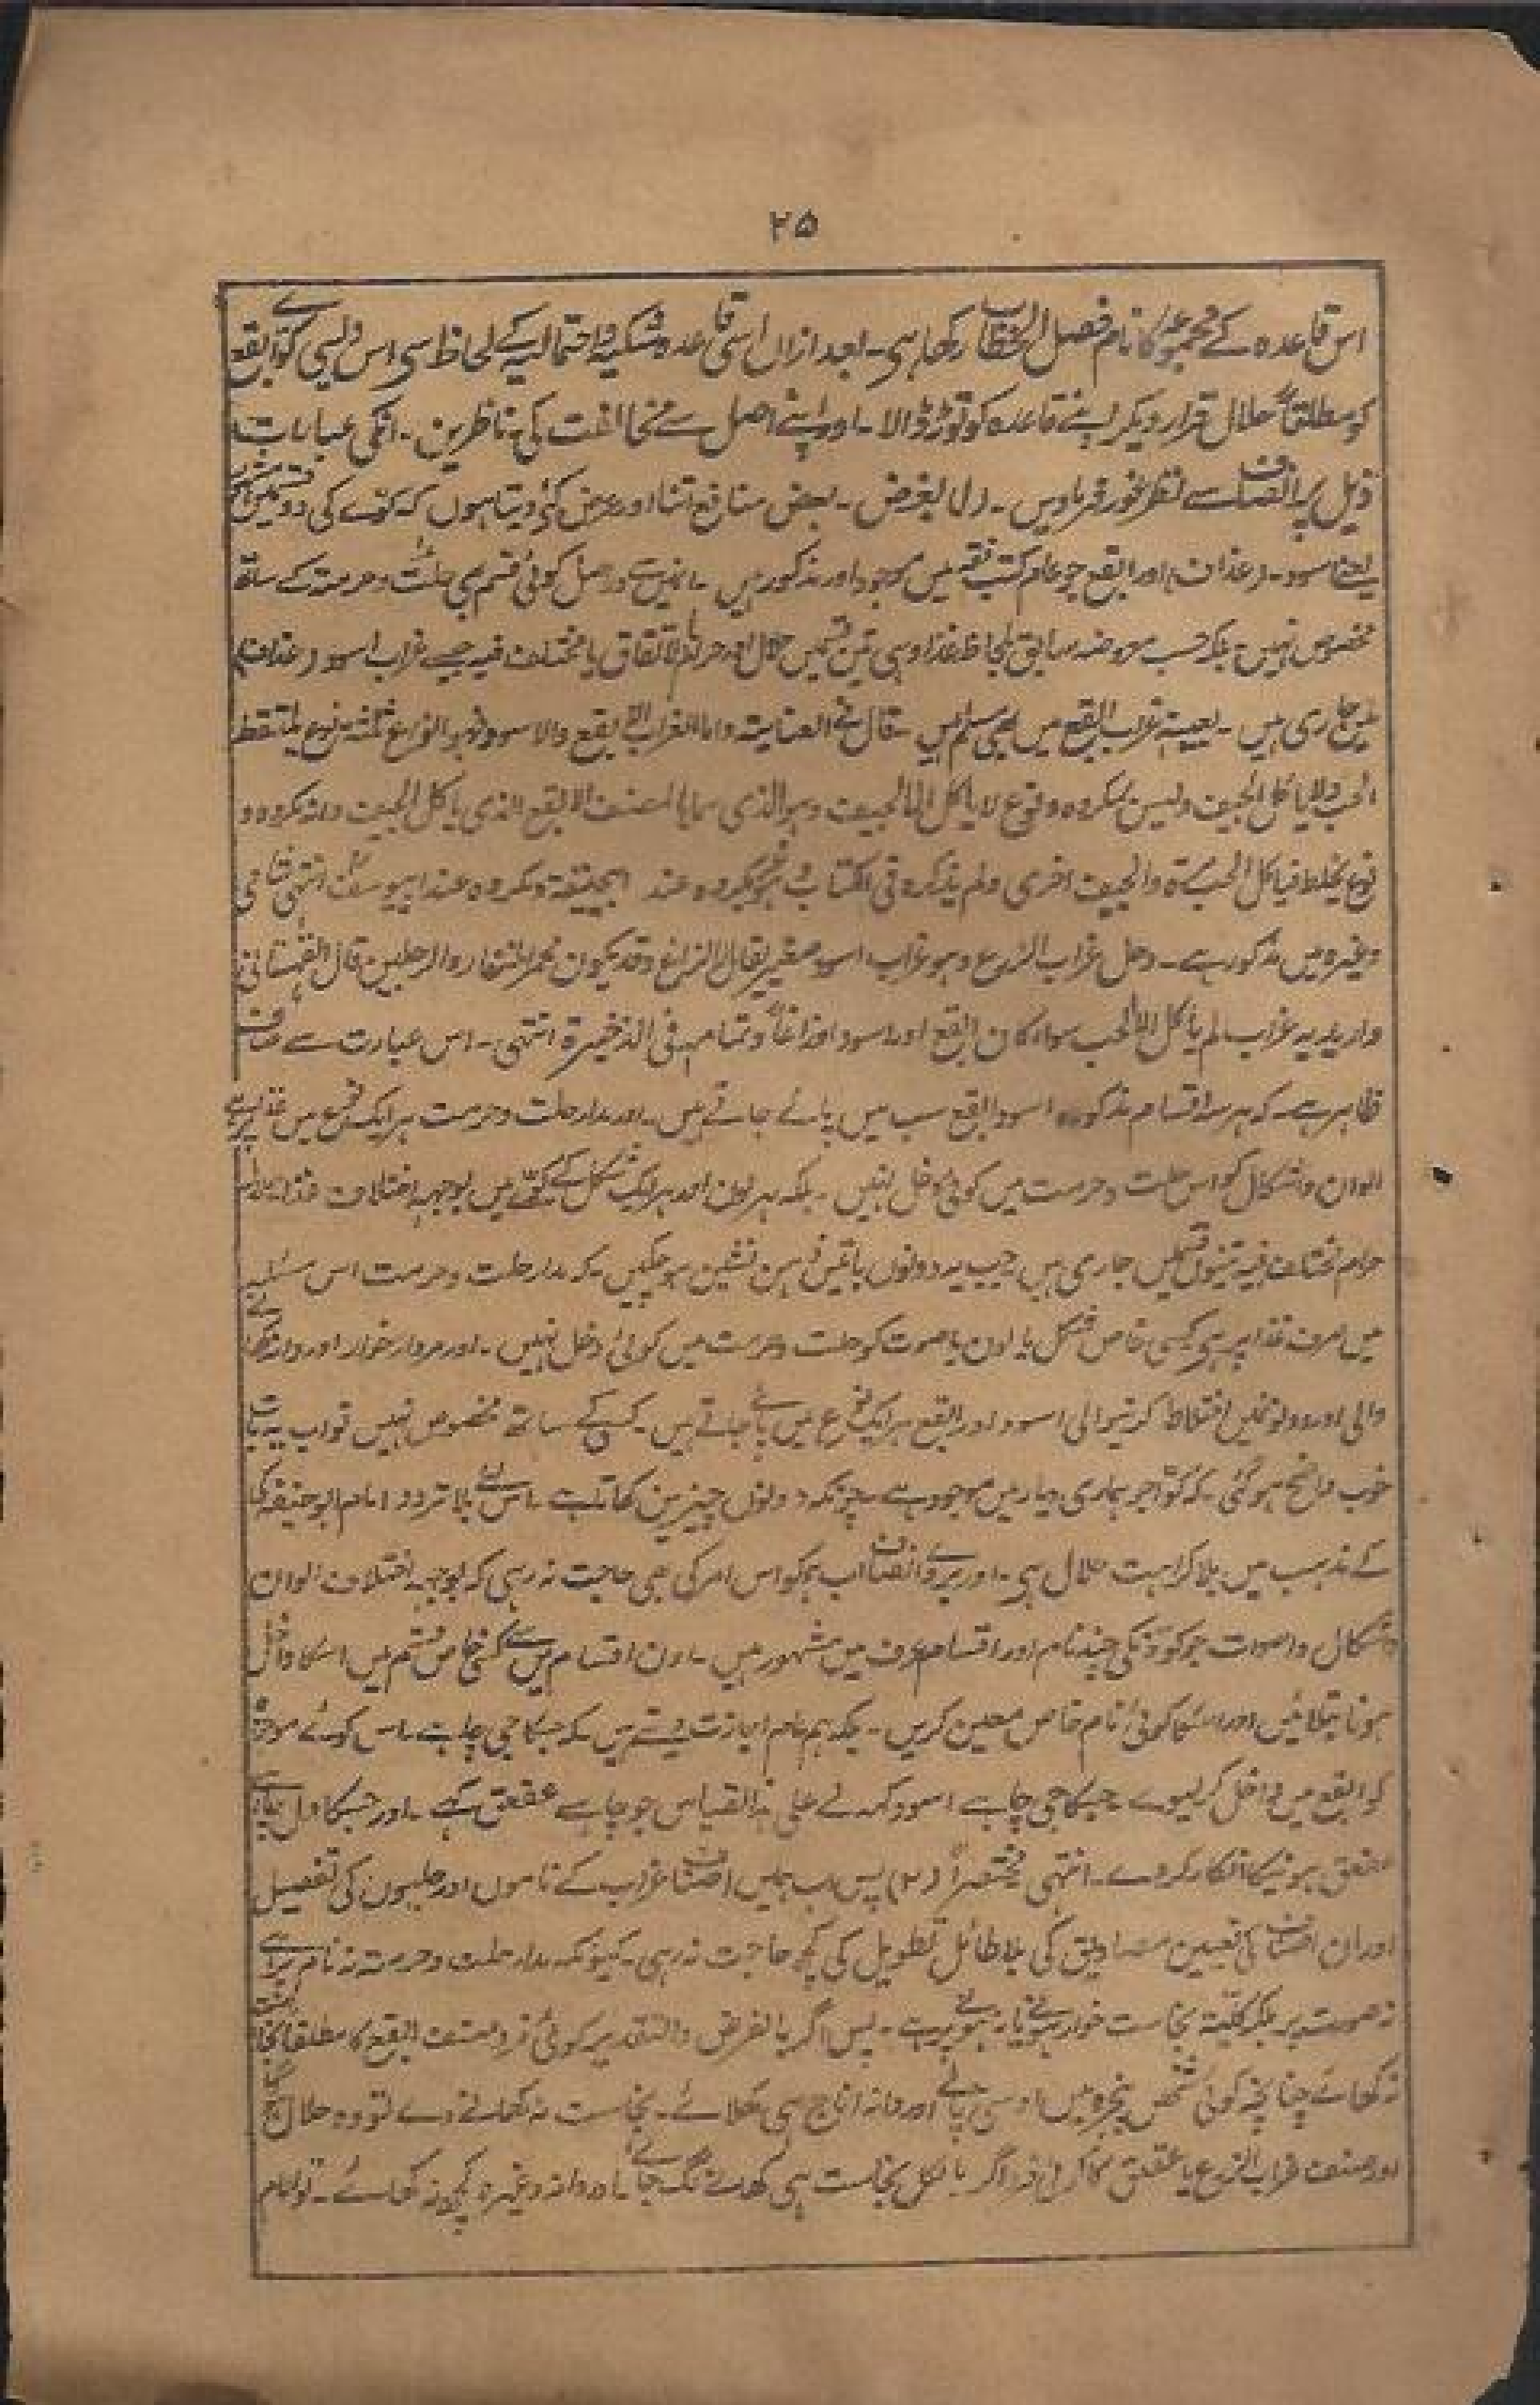 ۲۵
اس قاعدہ کے مجموعہ کا نام فصل الخطاب رکھا ہی۔ بعد ازاں اسی قاعدہ شکیہ و احتمالیہ کے لحاظ سی اس دیسی کوّے ابقع
کو مطلقاً حلال قرار دیکر اپنے قاعدہ کو توڑ ڈالا۔ اور اپنے اصل سے مخالفت کی ناظرین۔ انکی عبارات
ذیل پر انصاف سے نظر غور فرماویں۔ بغرض۔ بعض منافع اتنا اور عرض کئی دیتا ہوں کہ کوّے کی دو قسمیں مشہور
یعنے اسود۔ (غداف) اور ابقع جو عام کتب فقہ میں موجود اور مذکور ہیں۔ انمیں سے در اصل کوئی قسم بھی حلت و حرمت کے ساتھ
مخصوص نہیں بلکہ حسب معروضہ سابق بلحاظ غذا وہی تین قسمیں حلال اور حرام بالاتفاق یا مختلف فیہ جیسے غراب اسود (غداف)
میں جاری ہیں۔ بعینہ غراب ابقع میں بھی مسلم ہیں۔ قال فے العنایة واما الغراب الابقع والاسود فهو انواع ثلثة نوع یلتقط
الحب ولا یاکل الجیف ولیس بمکروه ونوع لا یاکل الا الجیف وهو الذی سماه المصنف الابقع الذی یاکل الجیف وانه مکروه و
نوع یخلط فیاکل الحب مرة والجیف اخری ولم یذکره فی الکتاب وهو غیر مکروه عند ابیحنیفة ومکروه عند ابییوسف انتهی شامی
وغیرہ میں مذکور ہے۔ وحل غراب الزرع وهو غراب اسود صغیر یقال له الزاغ وقد یکون محمر المنقار والرجلین قال القهستانی
وارید به غراب لم یأکل الا الحب سواء کان ابقع او اسود او زاغاً وتمامه فی الذخیرة انتهی۔ اس عبارت سے صاف
ظاہر ہے۔ کہ ہر سہ اقسام مذکورہ اسود ابقع سب میں پائے جاتے ہیں۔ اور مدار حلت و حرمت ہر ایک نوع میں غذا پر ہے
الوان و اشکال کو اس حلت و حرمت میں کوئی دخل نہیں۔ بلکہ ہر لون اور ہر ایک شکل کے کوّے میں بوجہ اختلاف غذا حلال
حرام مختلف فیہ تینوں قسمیں جاری ہیں جب یہ دونوں باتیں ذہن نشین ہو چکیں۔ کہ مدار حلت و حرمت اس مسئلہ
میں صرف غذا پر ہی کسی خاص شکل یا لون یا صوت کو حلت و حرمت میں کوئی دخل نہیں۔ اور مردار خوار اور دانہ کھانے
والی اور دونوں میں اختلاط کرنیوالی اسود اور ابقع ہر ایک نوع میں پائے جاتے ہیں۔ کسی کے ساتھ مخصوص نہیں تو اب یہ بات
خوب واضح ہو گئی۔ کہ کوّا جو ہماری دیار میں موجود ہے۔ چونکہ دونوں چیزیں کھاتا ہے۔ اس لئے بلا تردد امام ابو حنیفہ
کے مذہب میں بلا کراہت حلال ہی۔ اور بروے انصاف اب ہمکو اس امر کی بھی حاجت نہ رہی کہ بوجہ اختلاف الوان
و اشکال و اصوات جو کوّونکی چند نام اور اقسام عرف میں مشہور ہیں۔ اون اقسام میں سے کسی خاص قسم میں اسکا داخل
ہونا بتلائیں اور اسکا کوئی نام خاص معین کریں۔ بلکہ ہم عام اجازت دیتے ہیں۔ کہ جسکا جی چاہے۔ اس کوّے
کو ابقع میں داخل کر لیوے جسکا جی چاہے اسود کہدے علی ہذا القیاس جو چاہے عقعق کہے۔ اور جسکا دل چاہے
عقعق ہونیکا انکار کردے۔ انتہی مختصراً (۲) پس اب ہمیں اصناف غراب کے ناموں اور حلیوں کی تفصیل
اور ان اصناف کی تعیین مصادیق کی بلا طائل تطویل کی کچھ حاجت نہ رہی۔ کیونکہ مدار حلت و حرمت نہ نام پر ہے
نہ صورت پر بلکہ کلیّتہ نجاست خوار ہونے یا نہ ہونے پر ہے۔ پس اگر بالفرض والتقدیر کوئی فرد صنف ابقع کا مطلقا نجاست
نہ کھائے چنانچہ کوئی شخص پنجرہ میں اوسی پالے اور دانہ اناج ہی کھلائے۔ نجاست نہ کھانے دے تو وہ حلال
اور صنف غراب الزرع یا عقعق کا کوئی فرد اگر بالکل نجاست ہی کھانے لگ جائے۔ اور دانہ وغیرہ کچھ نہ کھائے۔ تو امام